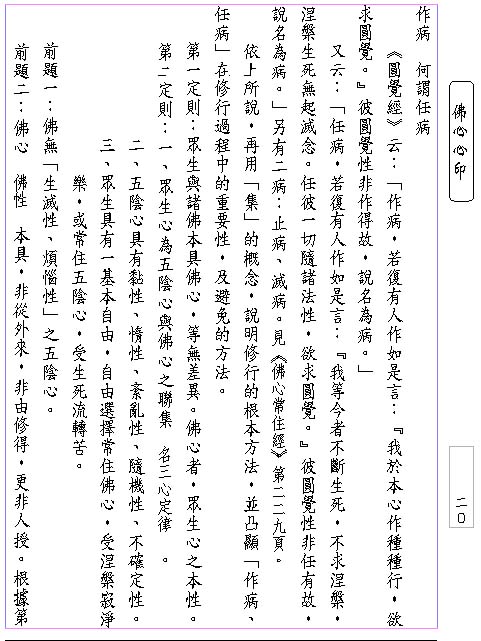 佛心心印
二〇
作病　何謂任病
《圓覺經》云：「作病，若復有人作如是言：『我於本心作種種行，欲
求圓覺。』彼圓覺性非作得故，說名為病。」
又云：「任病，若復有人作如是言：『我等今者不斷生死，不求涅槃，
涅槃生死無起滅念。任彼一切隨諸法性，欲求圓覺。』彼圓覺性非任有故，
說名為病。」另有二病：止病、滅病。見《佛心常住經》第二二九頁。
依上所說，再用「集」的概念，說明修行的根本方法，並凸顯「作病、
任病」在修行過程中的重要性，及避免的方法。
第一定則：眾生與諸佛本具佛心，等無差異。佛心者，眾生心之本性。
第二定則：一、眾生心為五陰心與佛心之聯集　名三心定律　。
二、五陰心具有黏性、惰性、紊亂性、隨機性、不確定性。
三、眾生具有一基本自由，自由選擇常住佛心，受涅槃寂淨
樂，或常住五陰心，受生死流轉苦。
前題一：佛無「生滅性、煩惱性」之五陰心。
前題二：佛心　佛性　本具，非從外來，非由修得，更非人授。根據第